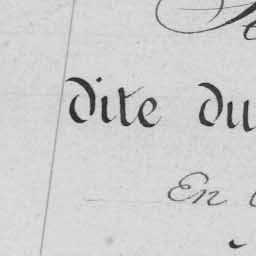 dite du
En